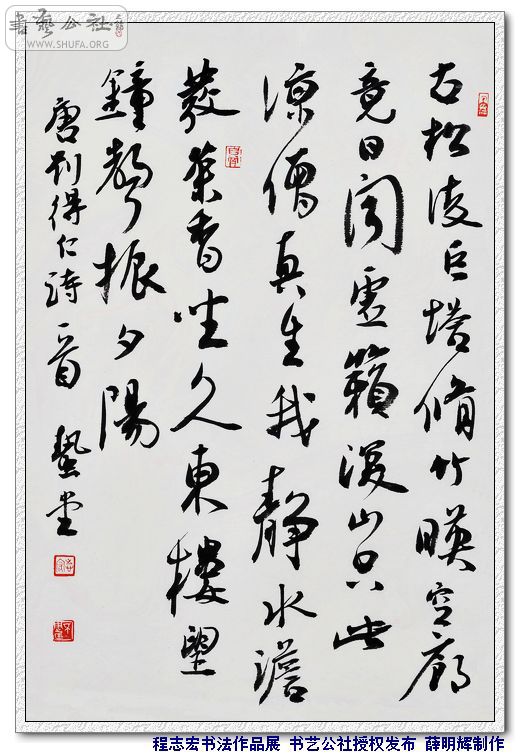 書藝公社
WWW.SHUFA.ORG
古松凌巨塔脩竹暎空廊
竟日聞虚籟深山只此
涼僧真生我靜水澹
發茶香坐久東樓望
鐘聲振夕陽
唐刘得仁詩一首 蟄堂
程志宏书法作品展 书艺公社授权发布 薛明辉制作